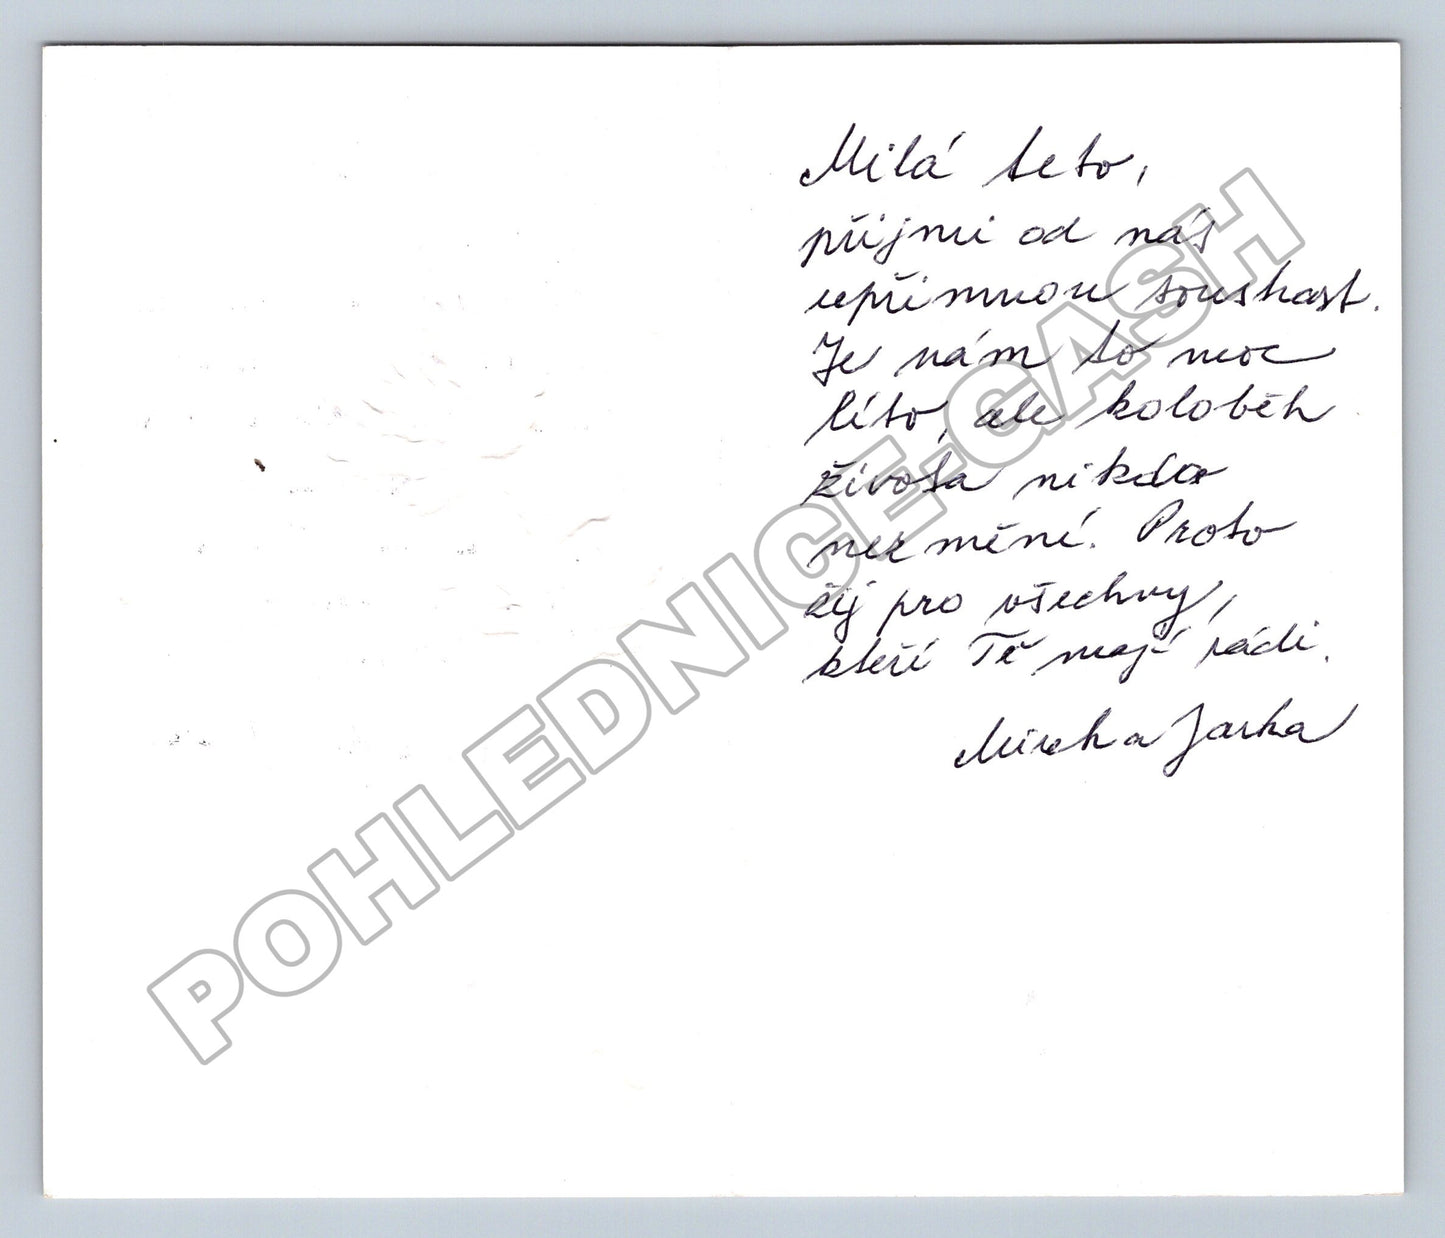 Milá teto,
přijmi od nás
upřimnou soustrast.
Je nám to moc
líto, ale koloběh
života nikdo
nezmění. Proto
žij pro všechny,
kteří Tě mají rádi.
Mirek a Jarka
POHLEDNICE.CASH